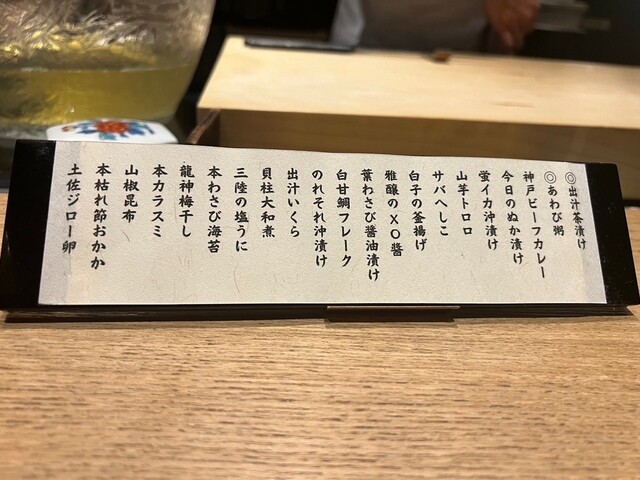 ◎出汁茶漬け
◎あわび粥
神戸ビーフカレー
今日のぬか漬け
蛍イカ沖漬け
山芋トロロ
サバへしこ
白子の釜揚げ
雅醸のXO醤
葉わさび醤油漬け
白甘鯛フレーク
のれそれ沖漬け
出汁いくら
貝柱大和煮
三陸の塩うに
本わさび海苔
龍神梅干し
本カラスミ
山椒昆布
本枯れ節おかか
土佐ジロー卵